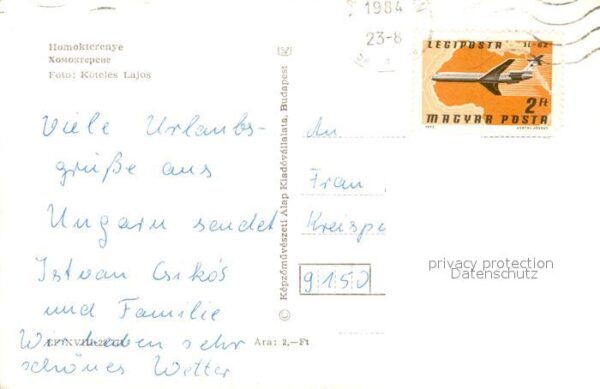 Homokterenye
Хомоктерене
Foto: Köteles Lajos
Viele Urlaubs-
grüße aus
Ungarn sendet
Istvan Csikós
und Familie
Wir haben sehr
schönes Wetter
Ára: 2,-Ft
Képzőművészeti Alap Kiadóvállalata, Budapest
1984
23-8
LÉGIPOSTA IL-62
2 Ft
MAGYAR POSTA
An
Frau
Kreisp
9150
privacy protection
Datenschutz